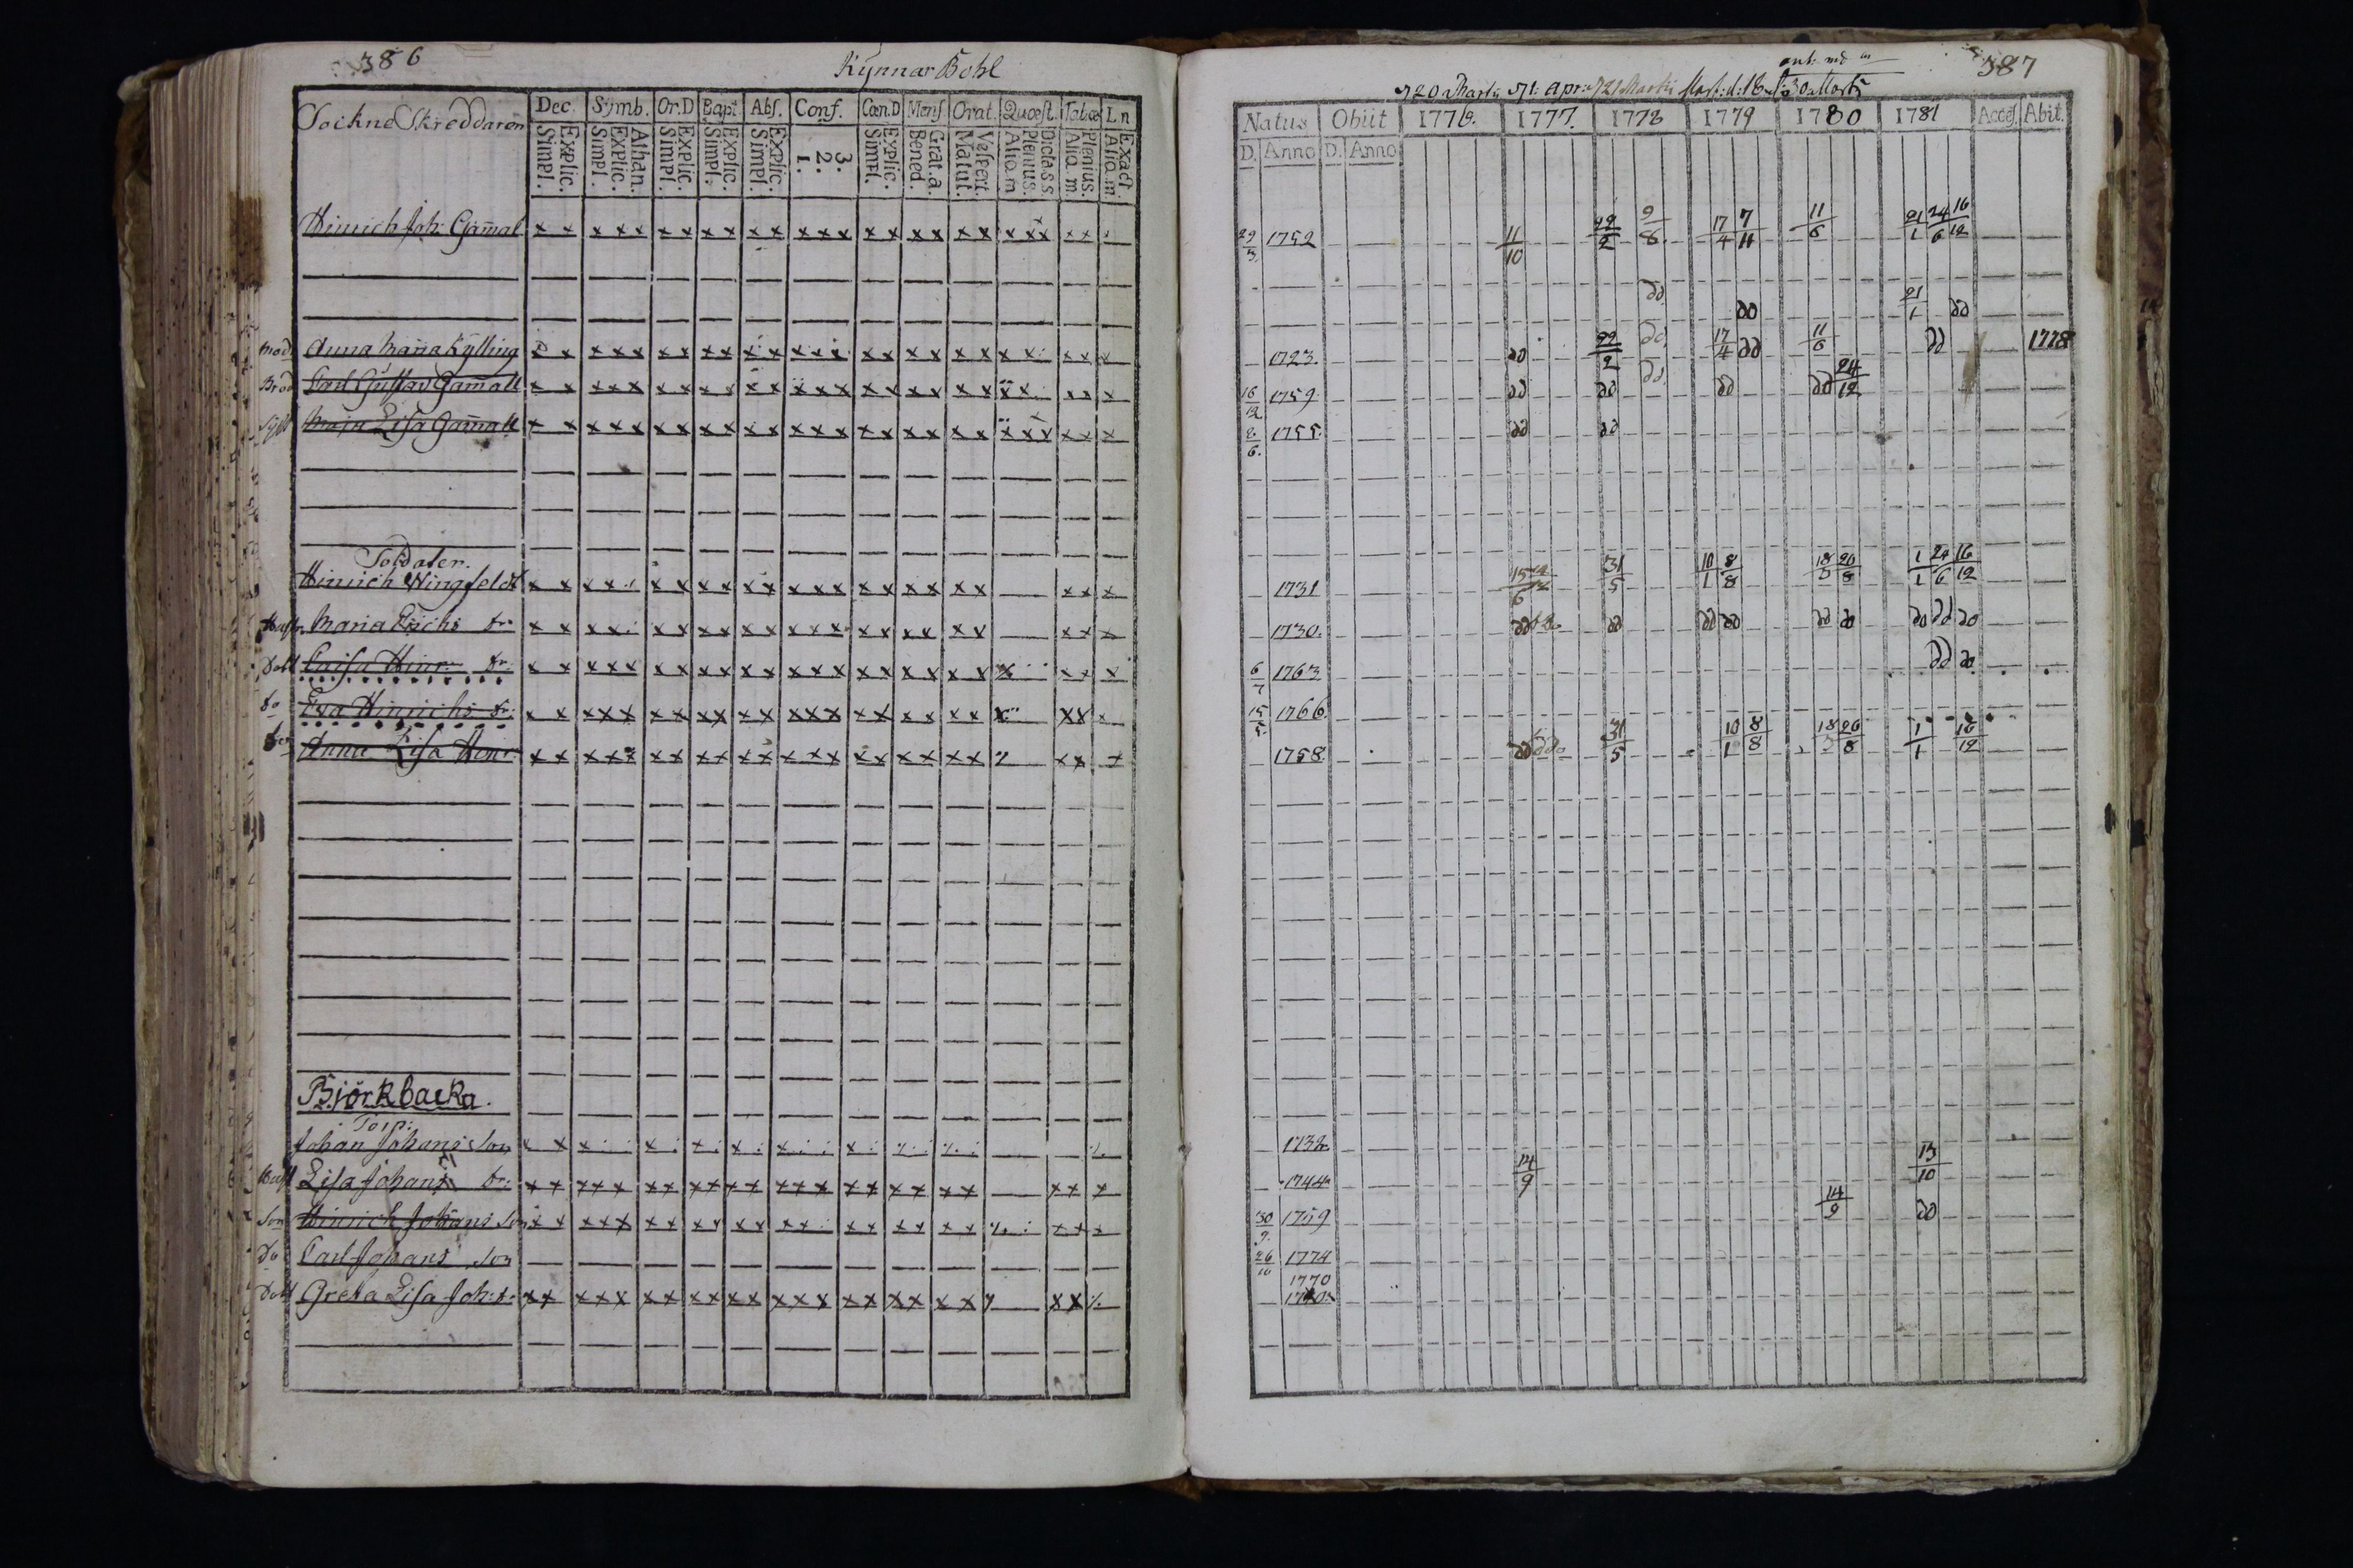 386
Kynnar Bohl
Sockne Skreddaren
Dec. Symb. Or.D Bapt. Abs. Conf. Cœn.D Mens. Orat. Quæst. Tabæ L.n
Explic. Simpl. Athan. Explic. Simpl. Explic. Simpl. Explic. Simpl. Explic. Simpl. 3. 2. 1. Explic. Simpl. Grat.a. Bened. Vespert. Matut. Dicta.s.s. Plenius. Aliq.m Plenius. Aliq.m. Exact Aliq.m.
Hinrich Joh: Gam̄al
mod Anna Maria Kylling
Brod Carl Gustav Gam̄all
Syst Maja Lisa Gam̄all
Soldaten.
Hinrich Wingfeldt
Hust Maria Erichs dr
Dott Caisa Hinr: dr:
do Eva Hinrichs dr:
do Anna Lisa Hinr:
Björkbacka.
Torp:
Johan Johans Son
Hust Lisa Johans dr:
Son Hinrich Johans Son
Do Carl Johans Son
Dott Greta Lisa Joh: dr
387
Natus Obiit 1776. 1777. 1778 1779 1780 1781 Access. Abit.
D. Anno D. Anno
29/3 1752 11/10 22/2 9/8 17/4 7/11 11/6 21/1 24/6 16/12
dd do 21/1 dd
1723. do 22/2 dd 17/4 dd 11/6 dd 1778
16/12 1759. dd dd dd dd dd 24/12
2/6. 1755. dd dd
1731 31/5 10/1 8/8 18/3 20/8 1/1 24/6 16/12
1730. dd dd dd dd dd do do dd do
6/7 1763 dd do
15/5 1766
1758. 31/5 10/1 8/8 18/3 20/8 1/1 16/12
1732
1744 14/9 13/10
30/9. 1759 14/9 do
26/10 1774
1770